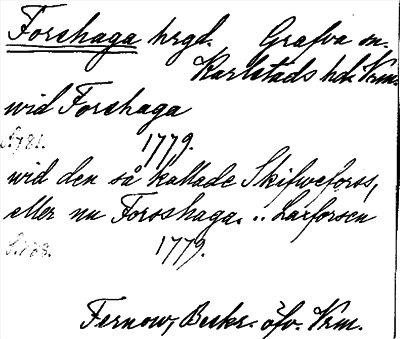 Forshaga hrgd. Grafva sn.
Karlstads hd. Vrm.
wid Forshaga
S. 781. 1779.
wid den så kallade Skifweforss,
eller nu Forsshaga. .. Laxforsen
1779.
Fernow, Beskr. öfv. Vrm.